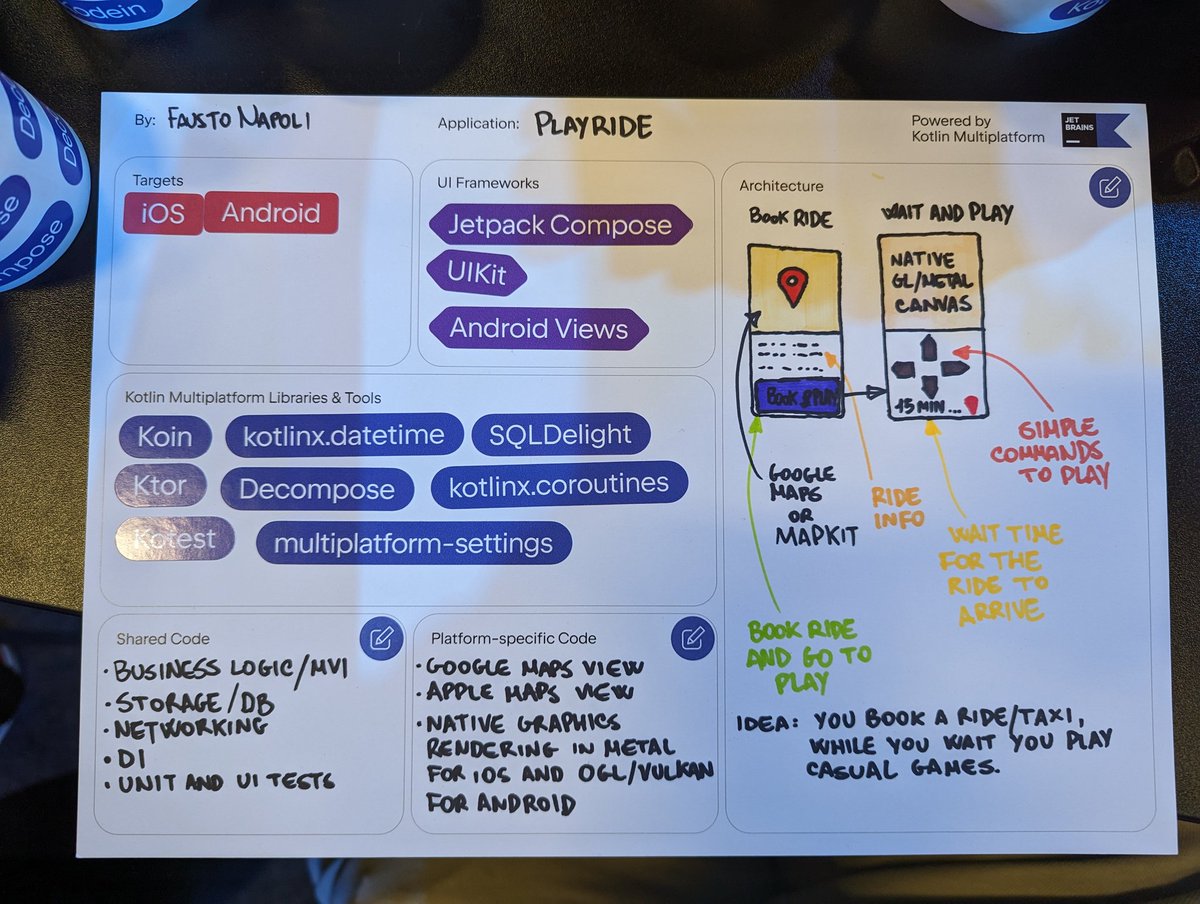 By: FAUSTO NAPOLI
Application: PLAYRIDE
Powered by
Kotlin Multiplatform
JET
BRAINS
Targets
iOS Android
UI Frameworks
Jetpack Compose
UIKit
Android Views
Kotlin Multiplatform Libraries & Tools
Koin kotlinx.datetime SQLDelight
Ktor Decompose kotlinx.coroutines
Kotest multiplatform-settings
Shared Code
• BUSINESS LOGIC/MVI
• STORAGE/DB
• NETWORKING
• DI
• UNIT AND UI TESTS
Platform-specific Code
• GOOGLE MAPS VIEW
• APPLE MAPS VIEW
• NATIVE GRAPHICS
RENDERING IN METAL
FOR iOS AND OGL/VULKAN
FOR ANDROID
Architecture
BOOK RIDE
WAIT AND PLAY
NATIVE
GL/METAL
CANVAS
BOOK & PLAY
15 MIN...
SIMPLE
COMMANDS
TO PLAY
GOOGLE
MAPS
OR
MAPKIT
RIDE
INFO
WAIT TIME
FOR THE
RIDE TO
ARRIVE
BOOK RIDE
AND GO TO
PLAY
IDEA: YOU BOOK A RIDE/TAXI,
WHILE YOU WAIT YOU PLAY
CASUAL GAMES.